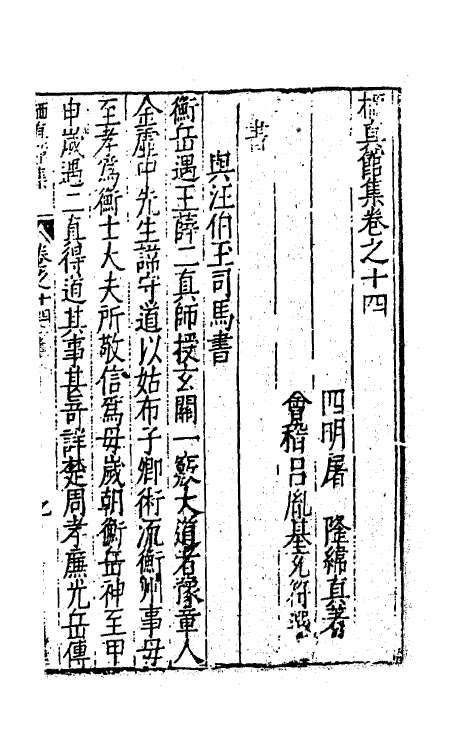 棲真館集卷之十四
四明屠　隆緯真著
會稽呂胤基玄符
書
與汪伯玉司馬書
衡岳遇王薛二真師授玄關一竅大道者豫章人
金虛中先生諱守道以姑布子卿術流衡州事母
至孝為衡士大夫所敬信為母歲朝衡岳神至甲
申歲遇二真得道其事甚奇詳楚周孝廉光岳傳
棲真館集
卷之十四